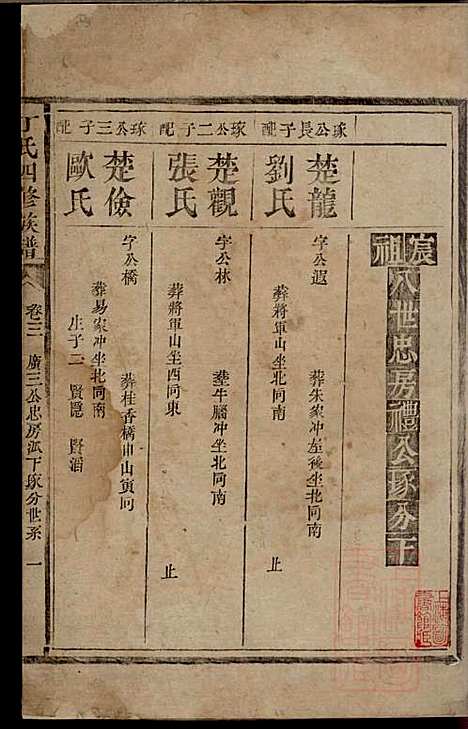 宸祖八世忠房禮公琢分下
琢公長子配
楚龍
劉氏
字公遐
葬朱家冲左後坐北向南
葬將軍山坐北向南
止
琢公二子配
楚觀
張氏
字公林
葬牛腦冲坐北向南
葬將軍山坐西向東
止
琢公三子配
楚儉
歐氏
字公橋
葬桂香橋申山寅向
葬易家冲坐北向南
生子二 賢隱 賢滔
丁氏四修族譜
卷三
廣三公忠房派下琢分世系
一